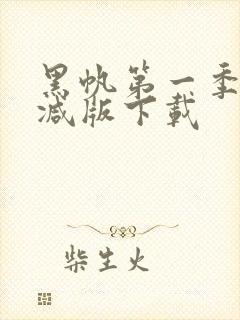 黑帆第一季
减版下载
柴生火